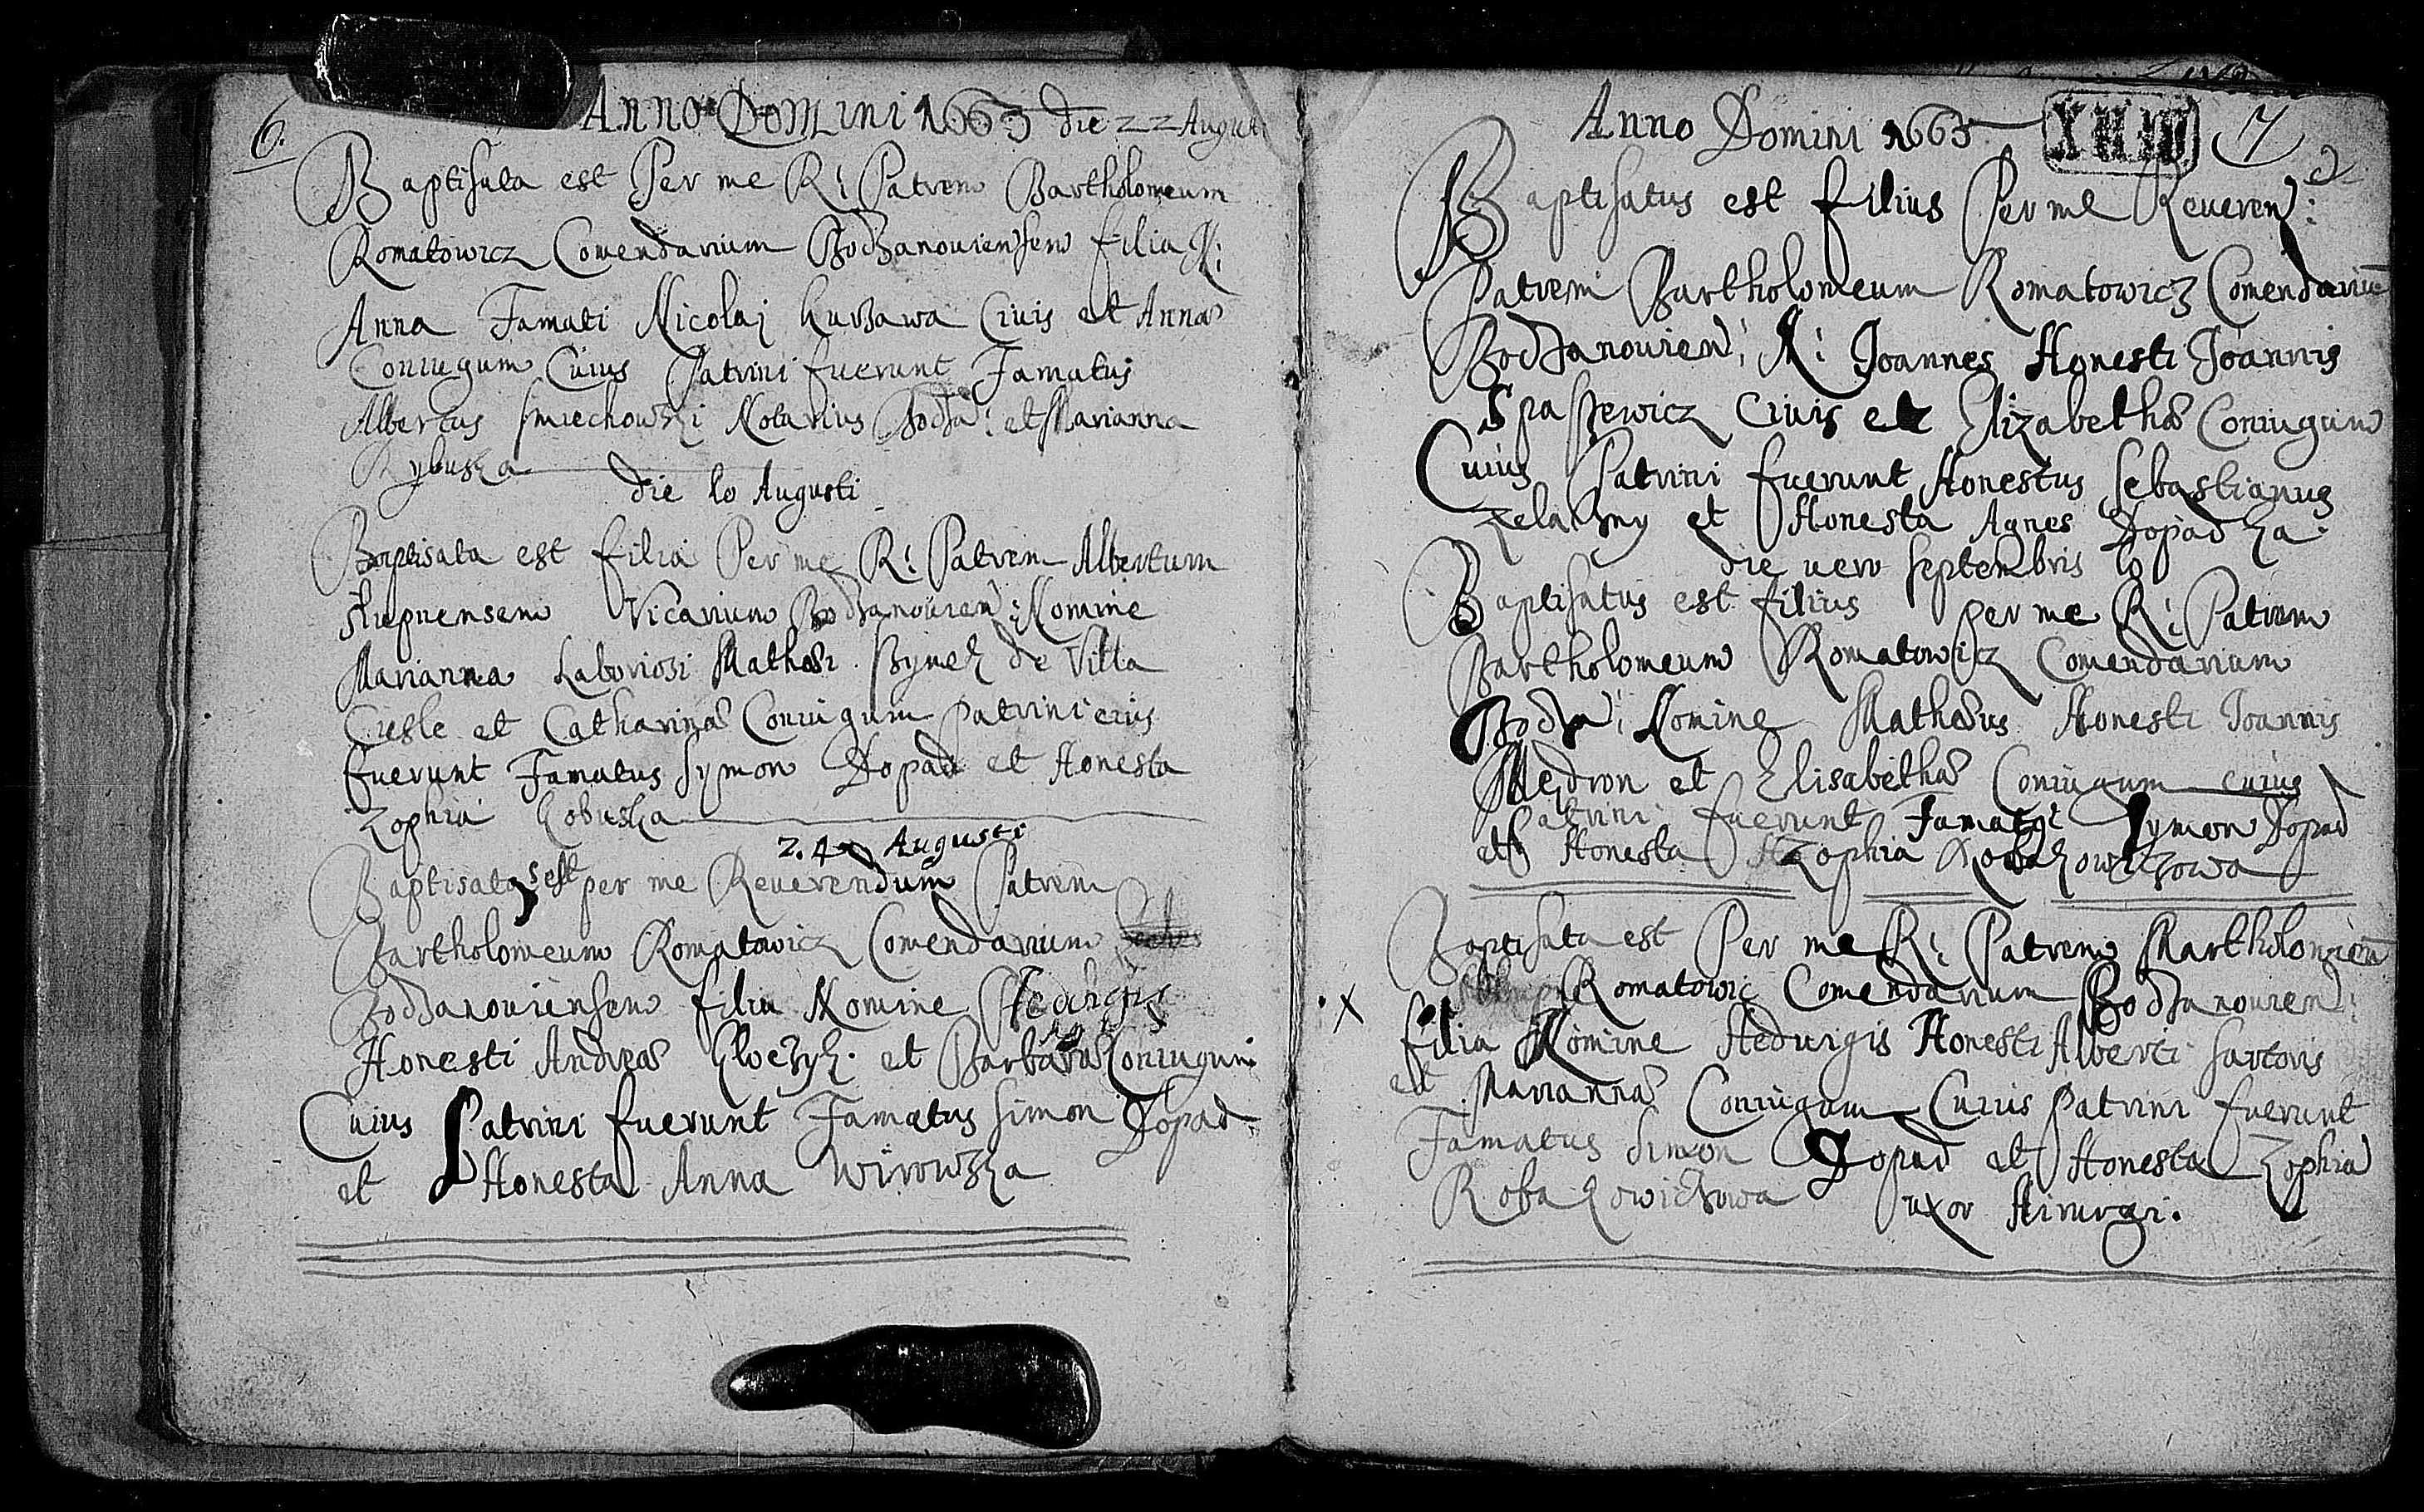 6.
Anno Domini 1665 die 22 Augusti
Baptisata est Per me R: Patrem Bartholomeum
Romatowicz Comendarium Bodzanouiensem filia N:
Anna Famati Nicolai Kurzawa Ciuis et Annæ
Coniugum Cuius Patrini fuerunt Famatus
Albertus Smiechowski Notarius Bodza: et Marianna
Rybuska
die 10 Augusti
Baptisata est filia Per me R: Patrem Albertum
Vicarium Bodzanouien: Nomine
Marianna Laboriosi Mathæi Bynek de Villa
Ciesle et Catharinæ Coniugum patrini eius
fuerunt Famatus Symon Dopad et Honesta
Zophia Kobuska
2.4 Augusti
Baptisata est per me Reuerendum Patrem
Bartholomeum Romatowicz Comendarium
Bodzanouiensem filia Nomine Hedvigis
Honesti Andreæ Kloczyk et Barbaræ Coniugum
Cuius Patrini fuerunt Famatus Simon Dopad
et Honesta Anna Wirowska
Anno Domini 1665 7
Baptisatus est filius Per me Reueren:
Patrem Bartholomeum Romatowicz Comendariu
Bodzanouien: N: Joannes Honesti Joannis
Spassewicz Ciuis et Elizabethæ Coniugum
Cuius Patrini fuerunt Honestus Sebastianus
Zelazny et Honesta Agnes Dopadka.
die uero septembris 10
Baptisatus est filius per me R: Patrem
Bartholomeum Romatowicz Comendarium
Bodza: Nomine Mathæus Honesti Joannis
Mędron et Elisabethæ Coniugum cuius
Patrini fuerunt Famatus Symon Dopad
et Honesta Zophia Robakowiczowa
Baptisata est Per me R: Patrem Bartholomeu
Romatowic Comendarium Bodzanouien:
X filia Nomine Hedvigis Honesti Alberti Sartoris
et Mariannæ Coniugum Cuius Patrini fuerunt
Famatus Simon Dopad et Honesta Zophia
Robakowiczowa uxor Hirurgi.